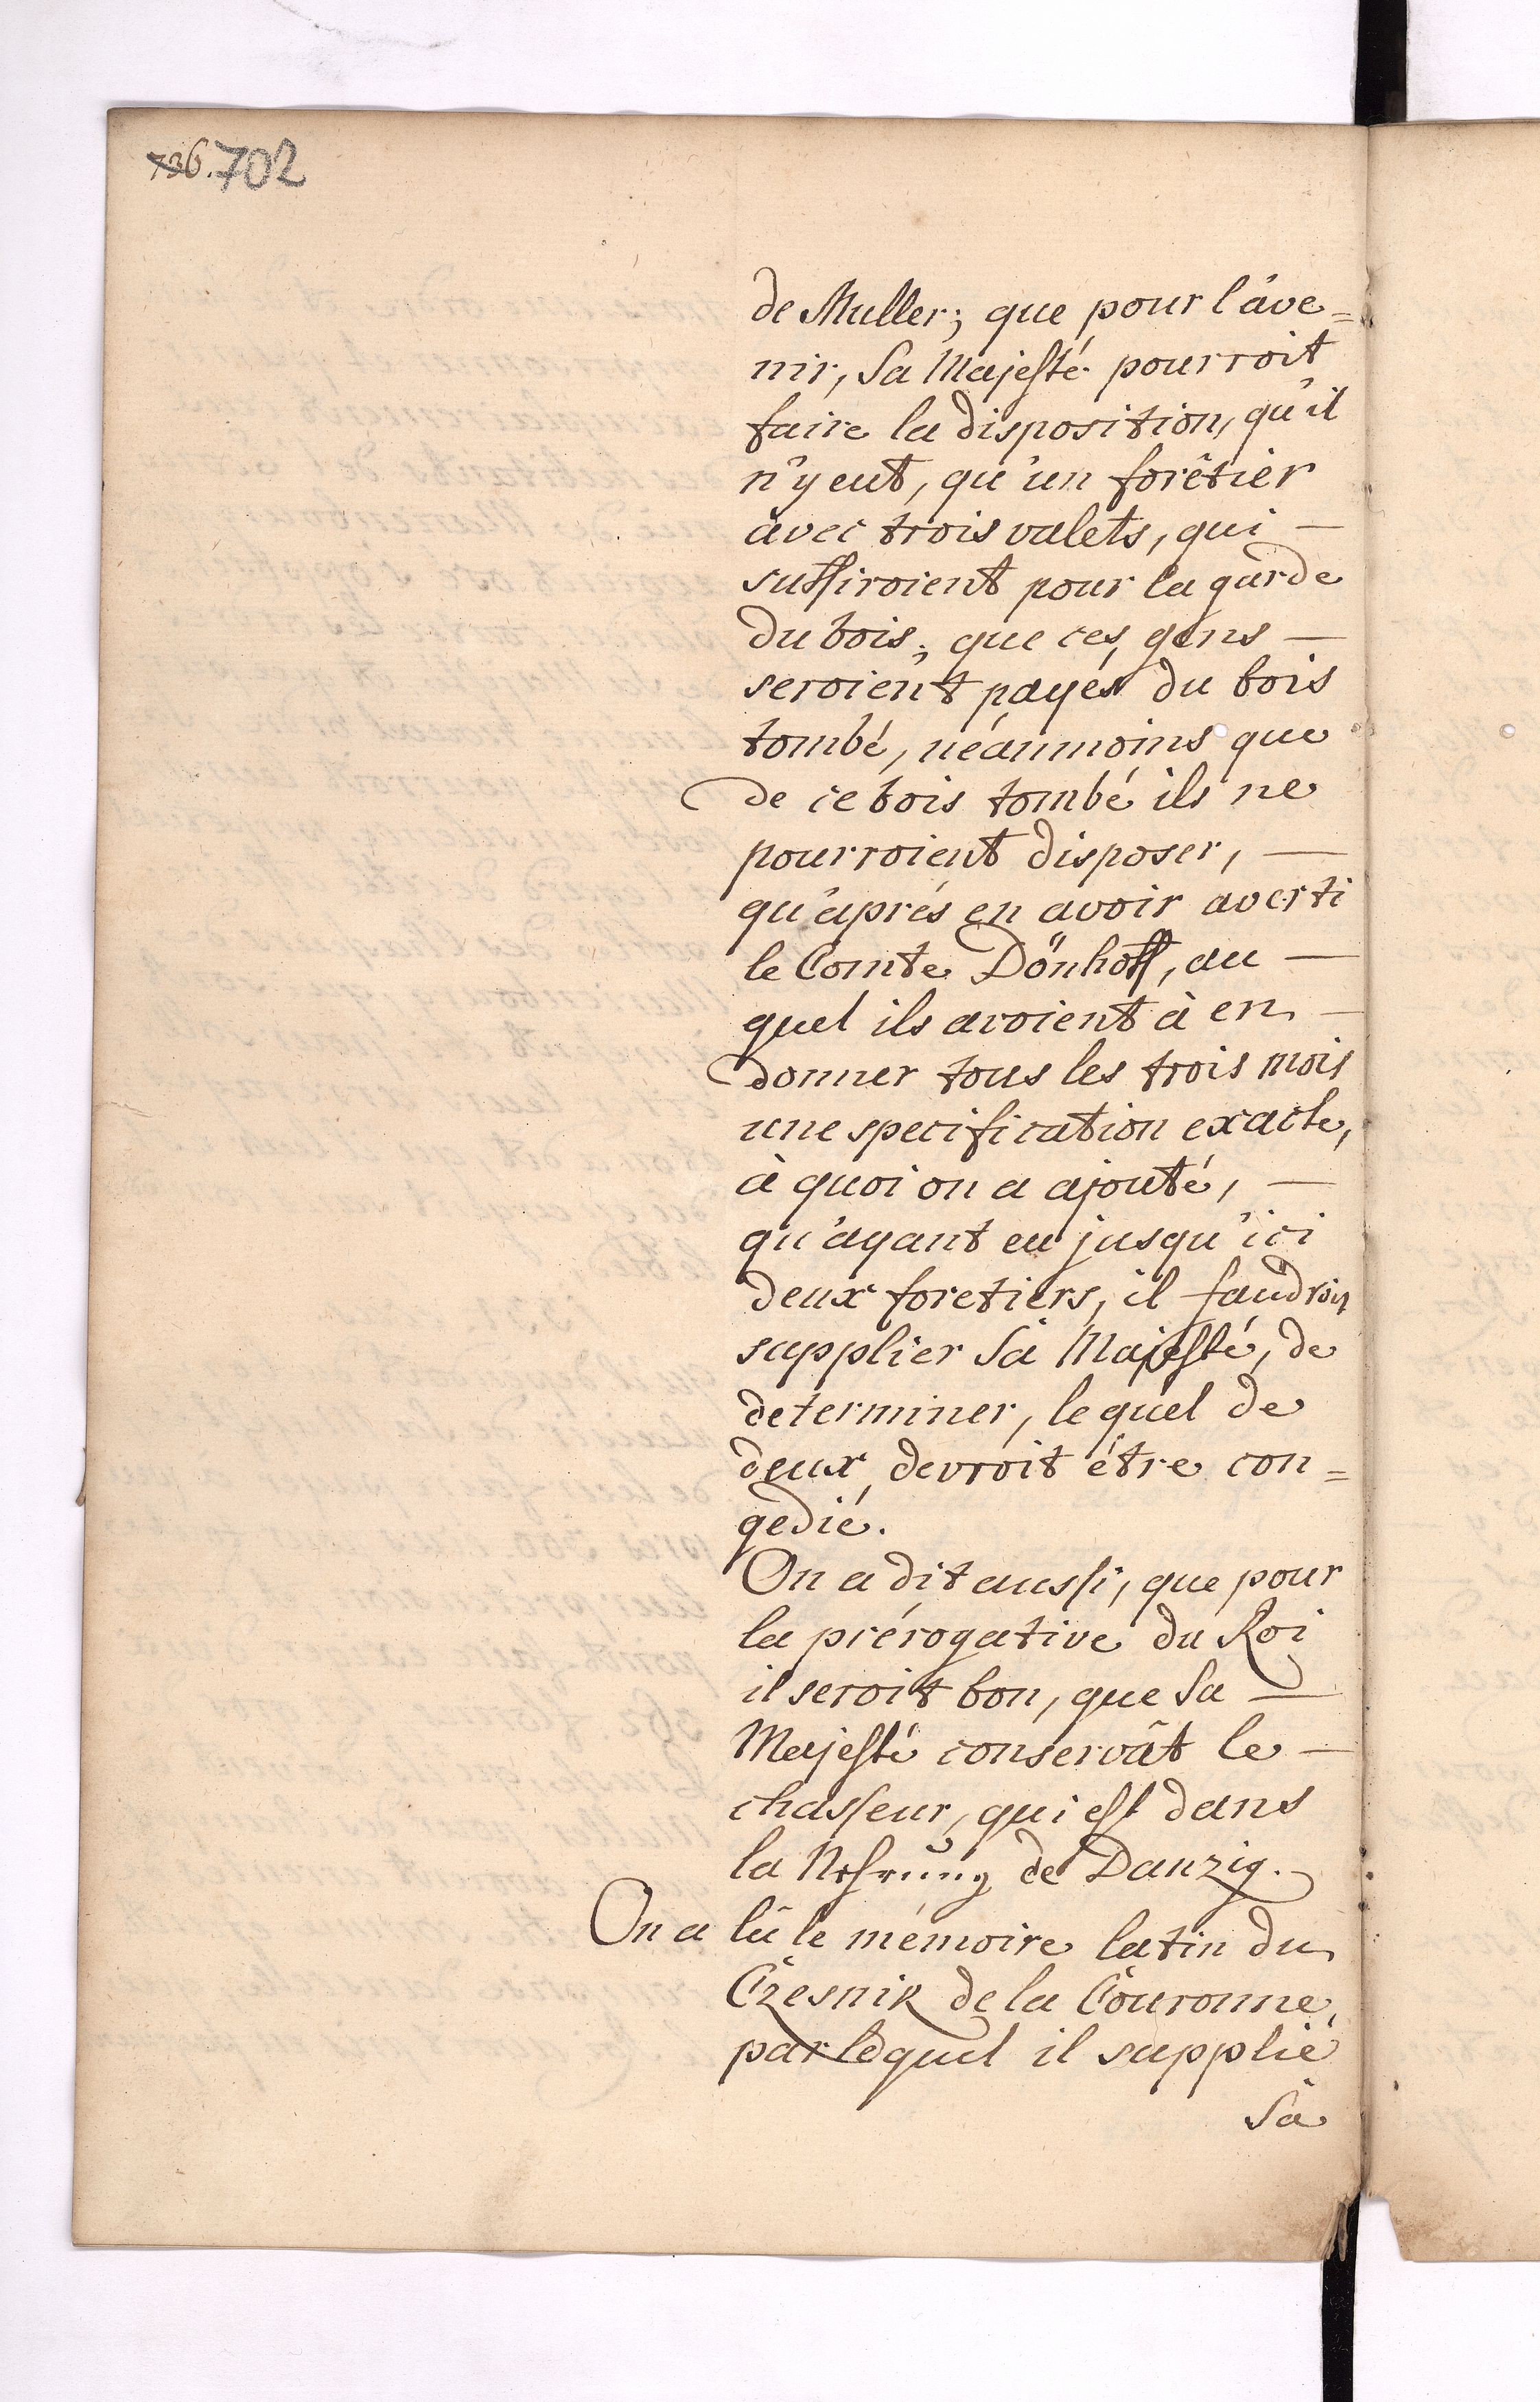 736. 702
de Muller; que pour l'ave=
nir, Sa Majesté pourroit
faire la disposition, qu'il
n'y eut, qu'un forêtier
avec trois valets, qui —
suffiroient pour la garde
du bois; que ces gens —
seroient payés du bois
tombé, néanmoins que
de ce bois tombé ils ne
pourroient disposer, —
qu'aprés en avoir averti
le Comte Dönhoff, au —
quel ils avoient à en —
donner tous les trois mois
une specification exacte,
à quoi on a ajouté, —
qu'ayant eu jusqu'ici
deux foretiers, il faudroit
supplier Sa Majesté, de
determiner, lequel de
deux devroit être con=
gedié.
On a dit aussi, que pour
la prérogative du Roi
il seroit bon, que Sa —
Majesté conservât le —
chasseur, qui est dans
la Nehrung de Danzig.
On a lû le mémoire latin du
Czesnik de la Couronne,
par lequel il supplie
Sa